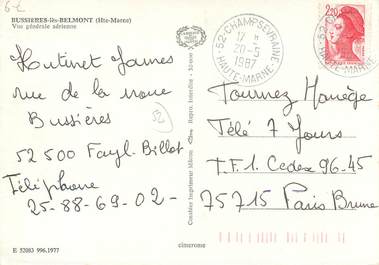 BUSSIERES-lès-BELMONT (Hte-Marne)
Vue générale aérienne
Hutinet James
rue de la noue
Bussières
52 500 Fayl-Billot
Téléphone
25-88-69-02-
E 52083 996.1977
52
Combier Imprimeur Mâcon
Repro. Interdite
cimcrome
52-CHAMPSEVRAINE
17 H
20-5
1987
HAUTE-MARNE
2,20
Tournez Manège
Télé 7 Jours
T.F.1. Cedex 96-45
75715 Paris Brune